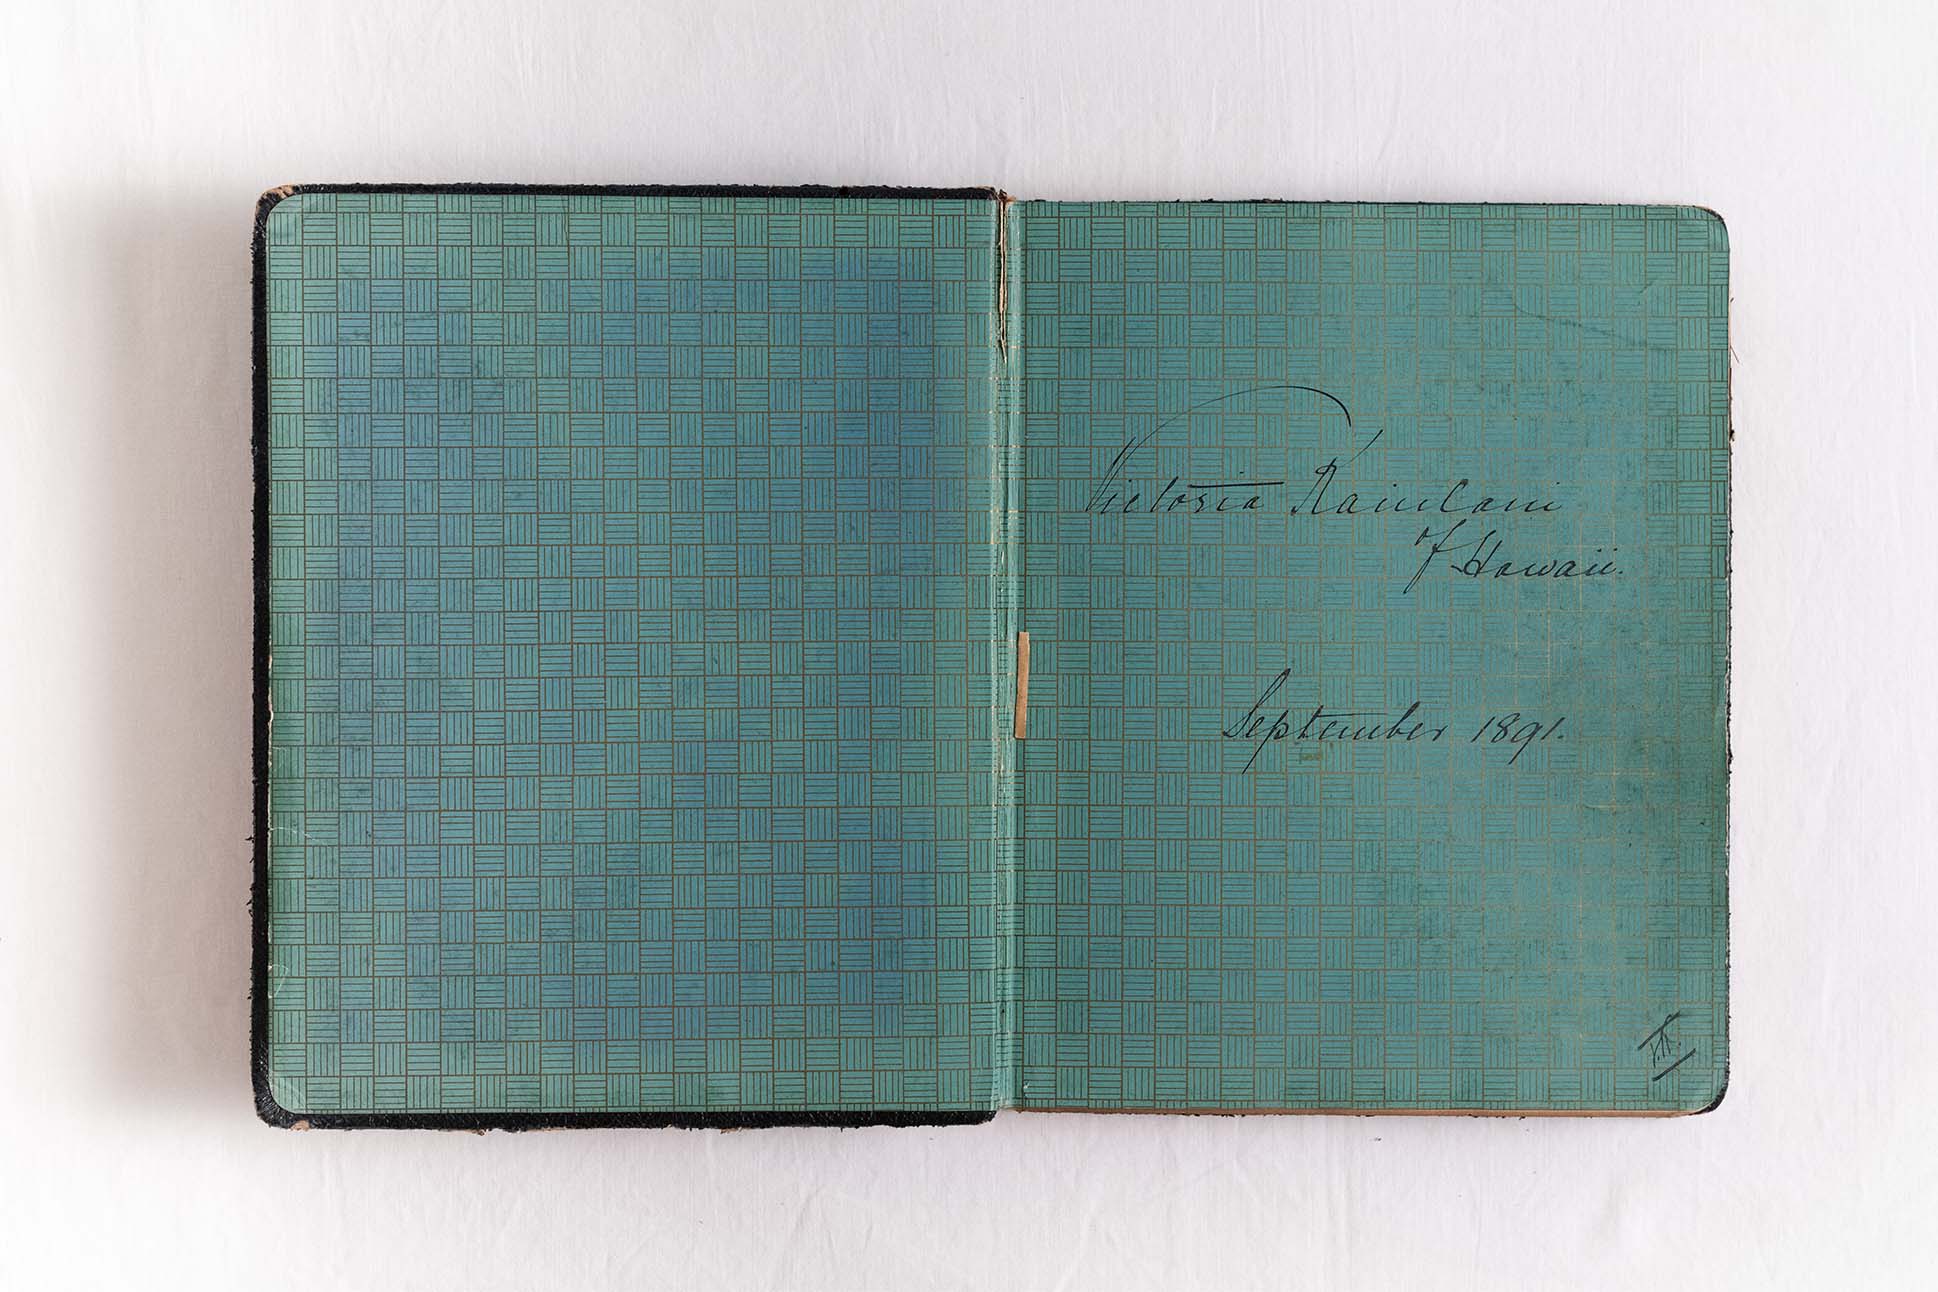 Victoria Kaiulani
of Hawaii.
September 1891.